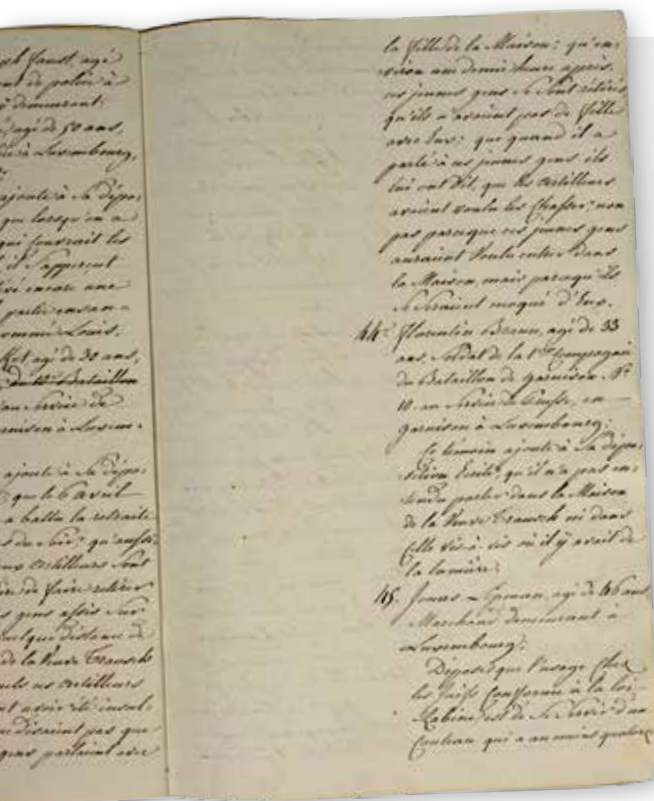 seph Faust, agé
à
demeurant
agé de 50 ans,
à Luxembourg,
ajoute à sa dépo-
que lorsqu'on a
qui couvrait les
il s'apperçut
encore une
partie ensan-
nommé Louis.
agé de 30 ans,
Bataillon
au Service de
garnison à Luxem-
ajoute à sa dépo-
que le 6 avril
a battu la retraite
du soir; qu'aussi-
artilleurs sont
de faire retirer
gens assis sur
quelque distance de
de la Veuve Trausch
ces artilleurs
avoir été insul-
disaient pas que
gens parlaient avec
la fille de la Maison; qu'en-
viron une demie heure après
ces jeunes gens se sont retirés
qu'ils n'avaient pas de fille
avec eux; que quand il a
parlé à ces jeunes gens ils
lui ont dit, que les artilleurs
avaient voulu les chasser, non
pas parceque ces jeunes gens
auraient voulu entrer dans
la Maison, mais parcequ'ils
se seraient moqué d'eux.
44. Florentin Braun, agé de 33
ans, Soldat de la 1re Compagnie
du Bataillon de garnison No
10. au Service de Prusse, en
garnison à Luxembourg;
Ce témoin ajoute à sa dépo-
sition écrite, qu'il n'a pas en-
tendu parler dans la Maison
de la Veuve Trausch ni dans
celle vis-à-vis où il y avait de
la lumière;
45. Jonas Lipman, agé de 46 ans
Marchand demeurant à
Luxembourg;
Dépose que l'usage chez
les Juifs conforme à la loi
Rabine, est de se servir d'un
couteau qui a au moins quatorze